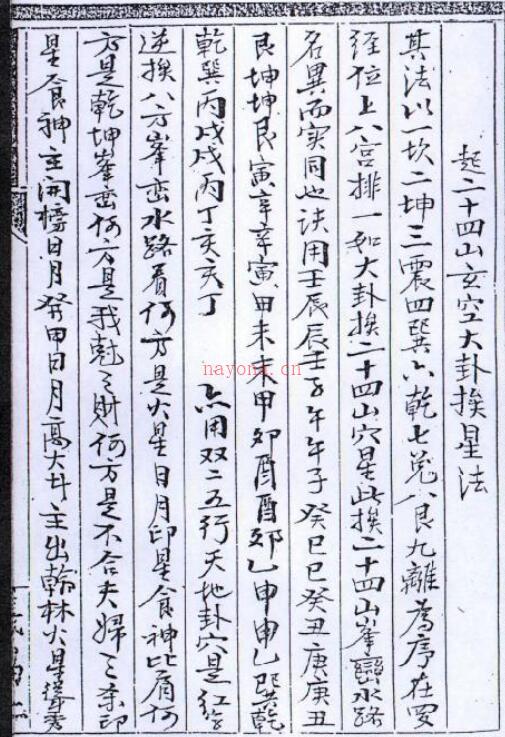 起二十四山玄空大卦挨星法
其法以一坎二坤三震四巽六乾七兌八艮九離為序在四
經位上八宮排一和大卦挨二十四山穴星此挨二十四山峯巒水路
名異而实同也诀用壬辰辰壬子午午子癸巳巳癸丑庚庚丑
艮坤坤艮寅辛辛寅甲未未甲卯酉酉卯乙申申乙巽乾
乾巽丙戌戌丙丁亥亥丁 亦用双二五行天地卦穴是红
逆挨八方峯巒水路看何方是火星日月印星食神比肩何
方是乾坤峯巒何方是我乾之財何方是不合夫婦之系印
星食神主開榜日月癸甲日月高大斗主出翰林火星聳秀
nayona.cn